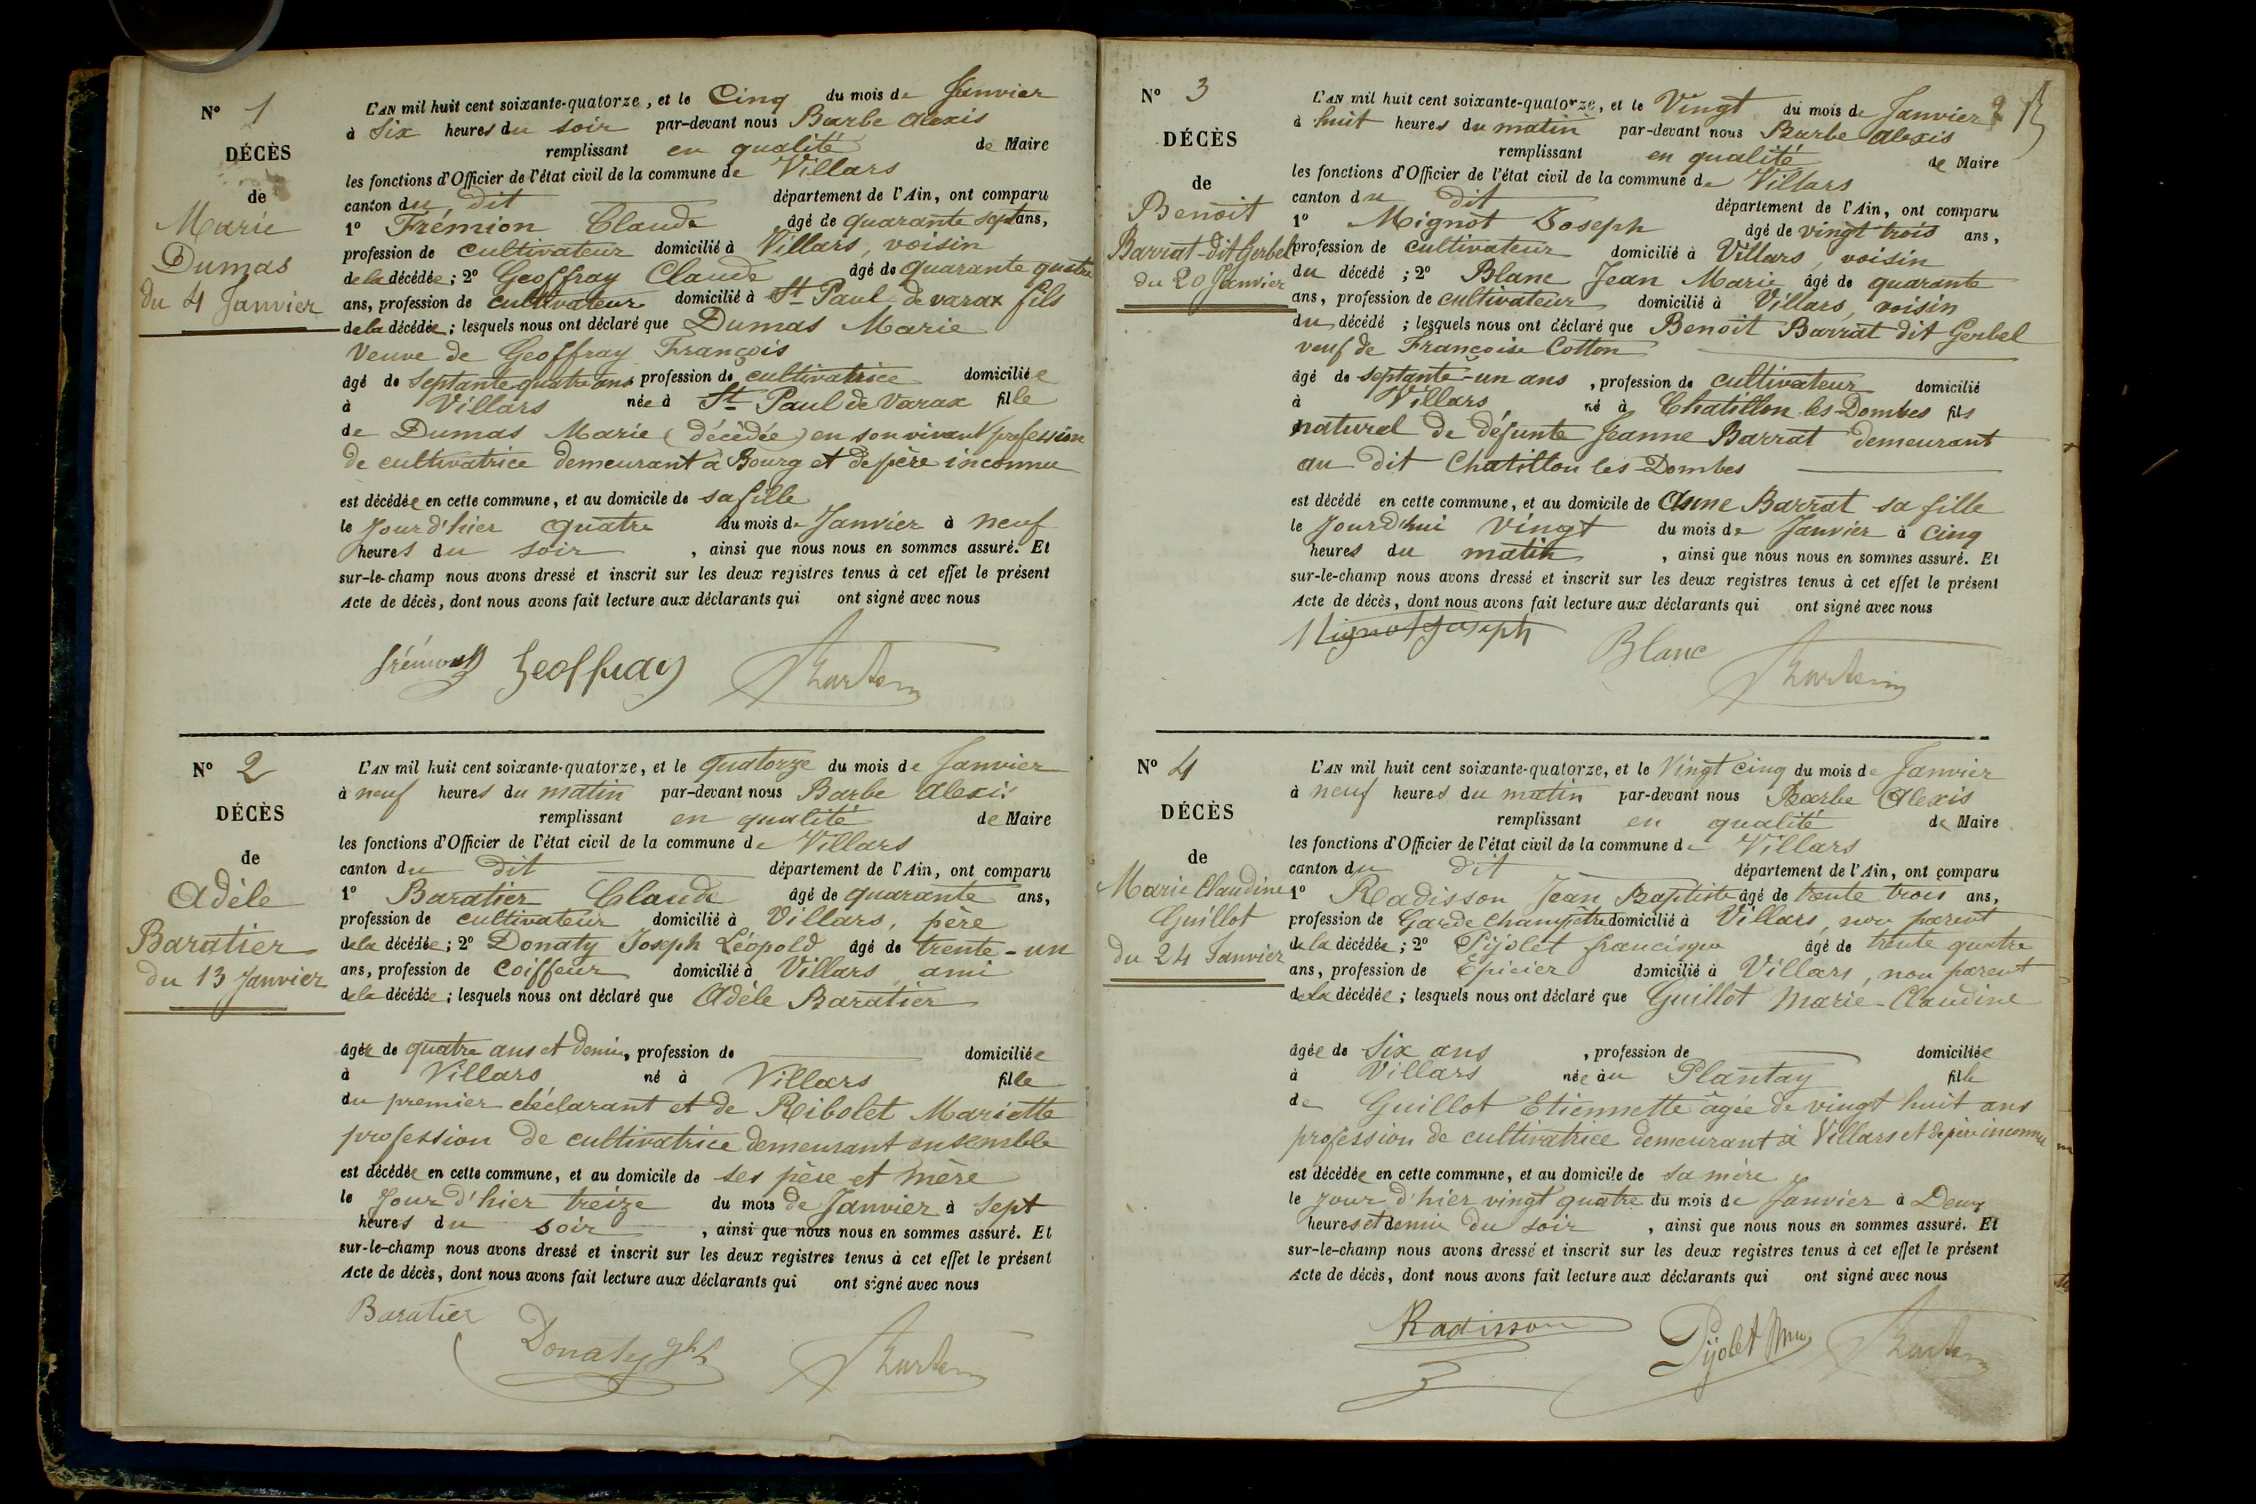 N° 1
DÉCÈS
de
Marie
Dumas
du 4 Janvier
L'AN mil huit cent soixante-quatorze, et le Cinq du mois de Janvier
à Six heures du soir par-devant nous Barbe Alexis
remplissant en qualité de Maire
les fonctions d'Officier de l'état civil de la commune de Villars
canton du dit département de l'Ain, ont comparu
1° Frémion Claude âgé de quarante sept ans,
profession de cultivateur domicilié à Villars, voisin
de la décédée; 2° Geoffray Claude âgé de quarante quatre
ans, profession de cultivateur domicilié à St Paul de varax fils
de la décédée; lesquels nous ont déclaré que Dumas Marie
Veuve de Geoffray François
âgé de septante quatre ans profession de cultivatrice domiciliée
à Villars née à St Paul de Varax fille
de Dumas Marie (décédée) en son vivant profession
de cultivatrice demeurant à Bourg et de père inconnu
est décédée en cette commune, et au domicile de sa fille
le Jour d'hier quatre du mois de Janvier à neuf
heures du soir, ainsi que nous nous en sommes assuré. Et
sur-le-champ nous avons dressé et inscrit sur les deux registres tenus à cet effet le présent
Acte de décès, dont nous avons fait lecture aux déclarants qui ont signé avec nous
frémion Geoffray
N° 2
DÉCÈS
de
Adèle
Baratier
du 13 Janvier
L'AN mil huit cent soixante-quatorze, et le quatorze du mois de Janvier
à neuf heures du matin par-devant nous Barbe Alexis
remplissant en qualité de Maire
les fonctions d'Officier de l'état civil de la commune de Villars
canton du dit département de l'Ain, ont comparu
1° Baratier Claude âgé de quarante ans,
profession de cultivateur domicilié à Villars, père
de la décédée; 2° Donaty Joseph Léopold âgé de trente-un
ans, profession de coiffeur domicilié à Villars ami
de la décédée; lesquels nous ont déclaré que Adèle Baratier
âgée de quatre ans et demie, profession de domiciliée
à Villars né à Villars fille
du premier déclarant et de Ribolet Mariette
profession de cultivatrice demeurant ensemble
est décédée en cette commune, et au domicile de ses père et mère
le Jour d'hier treize du mois de Janvier à sept
heures du soir, ainsi que nous nous en sommes assuré. Et
sur-le-champ nous avons dressé et inscrit sur les deux registres tenus à cet effet le présent
Acte de décès, dont nous avons fait lecture aux déclarants qui ont signé avec nous
Baratier
Donaty
N° 3
DÉCÈS
de
Benoit
Barrat-dit Gerbel
du 20 Janvier
L'AN mil huit cent soixante-quatorze, et le Vingt du mois de Janvier 2
à huit heures du matin par-devant nous Barbe Alexis
remplissant en qualité de Maire
les fonctions d'Officier de l'état civil de la commune de Villars
canton du dit département de l'Ain, ont comparu
1° Mignot Joseph âgé de vingt trois ans,
profession de cultivateur domicilié à Villars, voisin
du décédé; 2° Blanc Jean Marie âgé de quarante
ans, profession de cultivateur domicilié à Villars, voisin
du décédé; lesquels nous ont déclaré que Benoit Barrat dit Gerbel
veuf de Françoise Cotton
âgé de septante-un ans, profession de cultivateur domicilié
à Villars né à Chatillon les-Dombes fils
naturel de défunte Jeanne Barrat demeurant
au dit Chatillon les-Dombes
est décédé en cette commune, et au domicile de Anne Barrat sa fille
le Jourd'hui vingt du mois de Janvier à cinq
heures du matin, ainsi que nous nous en sommes assuré. Et
sur-le-champ nous avons dressé et inscrit sur les deux registres tenus à cet effet le présent
Acte de décès, dont nous avons fait lecture aux déclarants qui ont signé avec nous
Mignot Joseph Blanc
N° 4
DÉCÈS
de
Marie Claudine
Guillot
du 24 Janvier
L'AN mil huit cent soixante-quatorze, et le Vingt cinq du mois de Janvier
à neuf heures du matin par-devant nous Barbe Alexis
remplissant en qualité de Maire
les fonctions d'Officier de l'état civil de la commune de Villars
canton du dit département de l'Ain, ont comparu
1° Radisson Jean Baptiste âgé de trente trois ans,
profession de Garde champêtre domicilié à Villars, non parent
de la décédée; 2° Pijolet francisque âgé de trente quatre
ans, profession de Epicier domicilié à Villars, non parent
de la décédée; lesquels nous ont déclaré que Guillot Marie-Claudine
âgée de Six ans, profession de domiciliée
à Villars née au Plantay fille
de Guillot Etiennette âgée de vingt huit ans
profession de cultivatrice demeurant à Villars et de père inconnu
est décédée en cette commune, et au domicile de sa mère
le jour d'hier vingt quatre du mois de Janvier à Deux
heures et demie du soir, ainsi que nous nous en sommes assuré. Et
sur-le-champ nous avons dressé et inscrit sur les deux registres tenus à cet effet le présent
Acte de décès, dont nous avons fait lecture aux déclarants qui ont signé avec nous
Radisson Pijolet